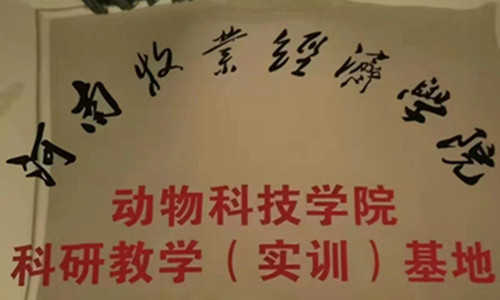 河南牧业经济学院
动物科技学院
科研教学（实训）基地